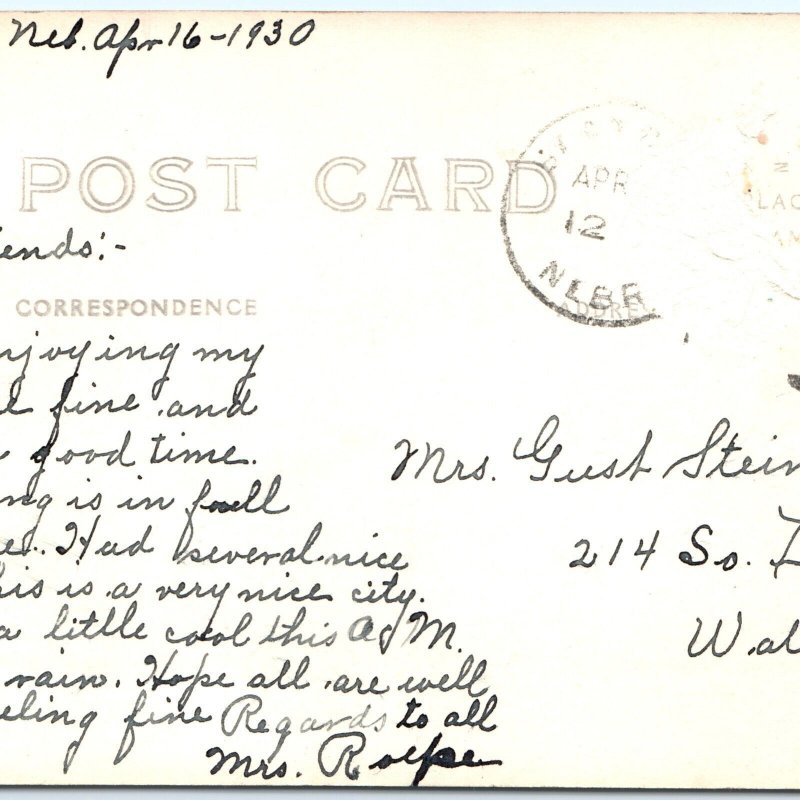 Neb. Apr 16-1930
POST CARD
iends:-
CORRESPONDENCE
njoying my
fine and
good time.
ng is in full
Had several nice
his is a very nice city.
a little cool this A.M.
rain. Hope all are well
eling fine Regards to all
Mrs. Rolpe
APR
12
NEBR
ADDRE
N
LAC
Mrs. Gust Stein
214 So.
Wal